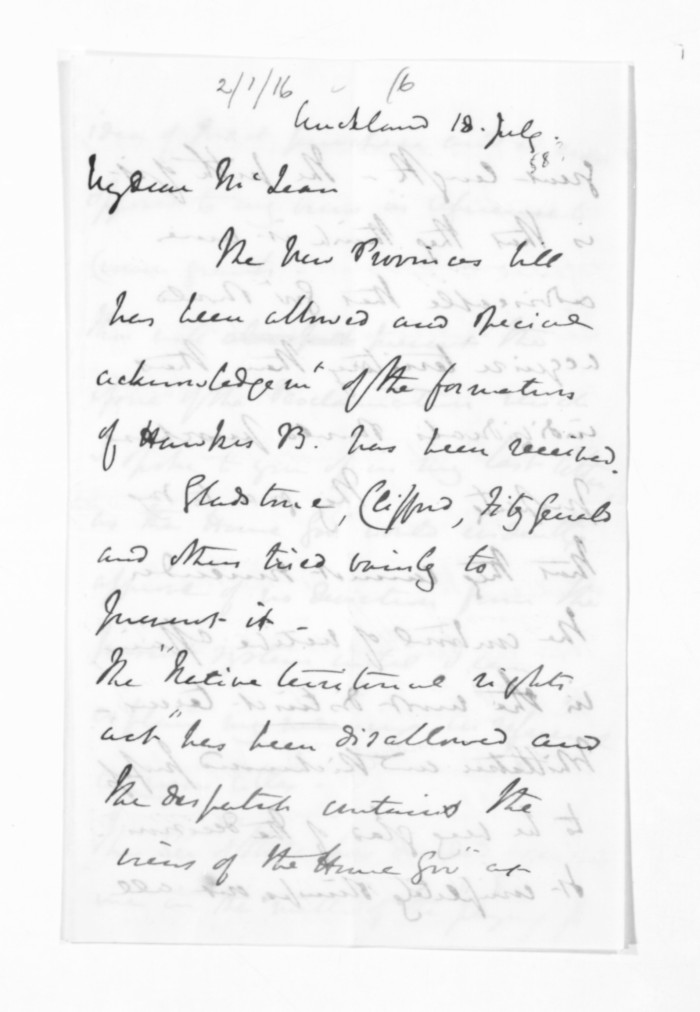 2/1/16 (6
Auckland 18. July.
58
My dear McLean
The New Provinces bill
has been allowed and special
acknowledgemt of the formation
of Hawkes B. has been received.
Gladstone, Clifford, FitzGerald
and others tried vainly to
prevent it -
The "Native territorial rights
act" has been disallowed and
the despatch contains the
views of the Home Govt at